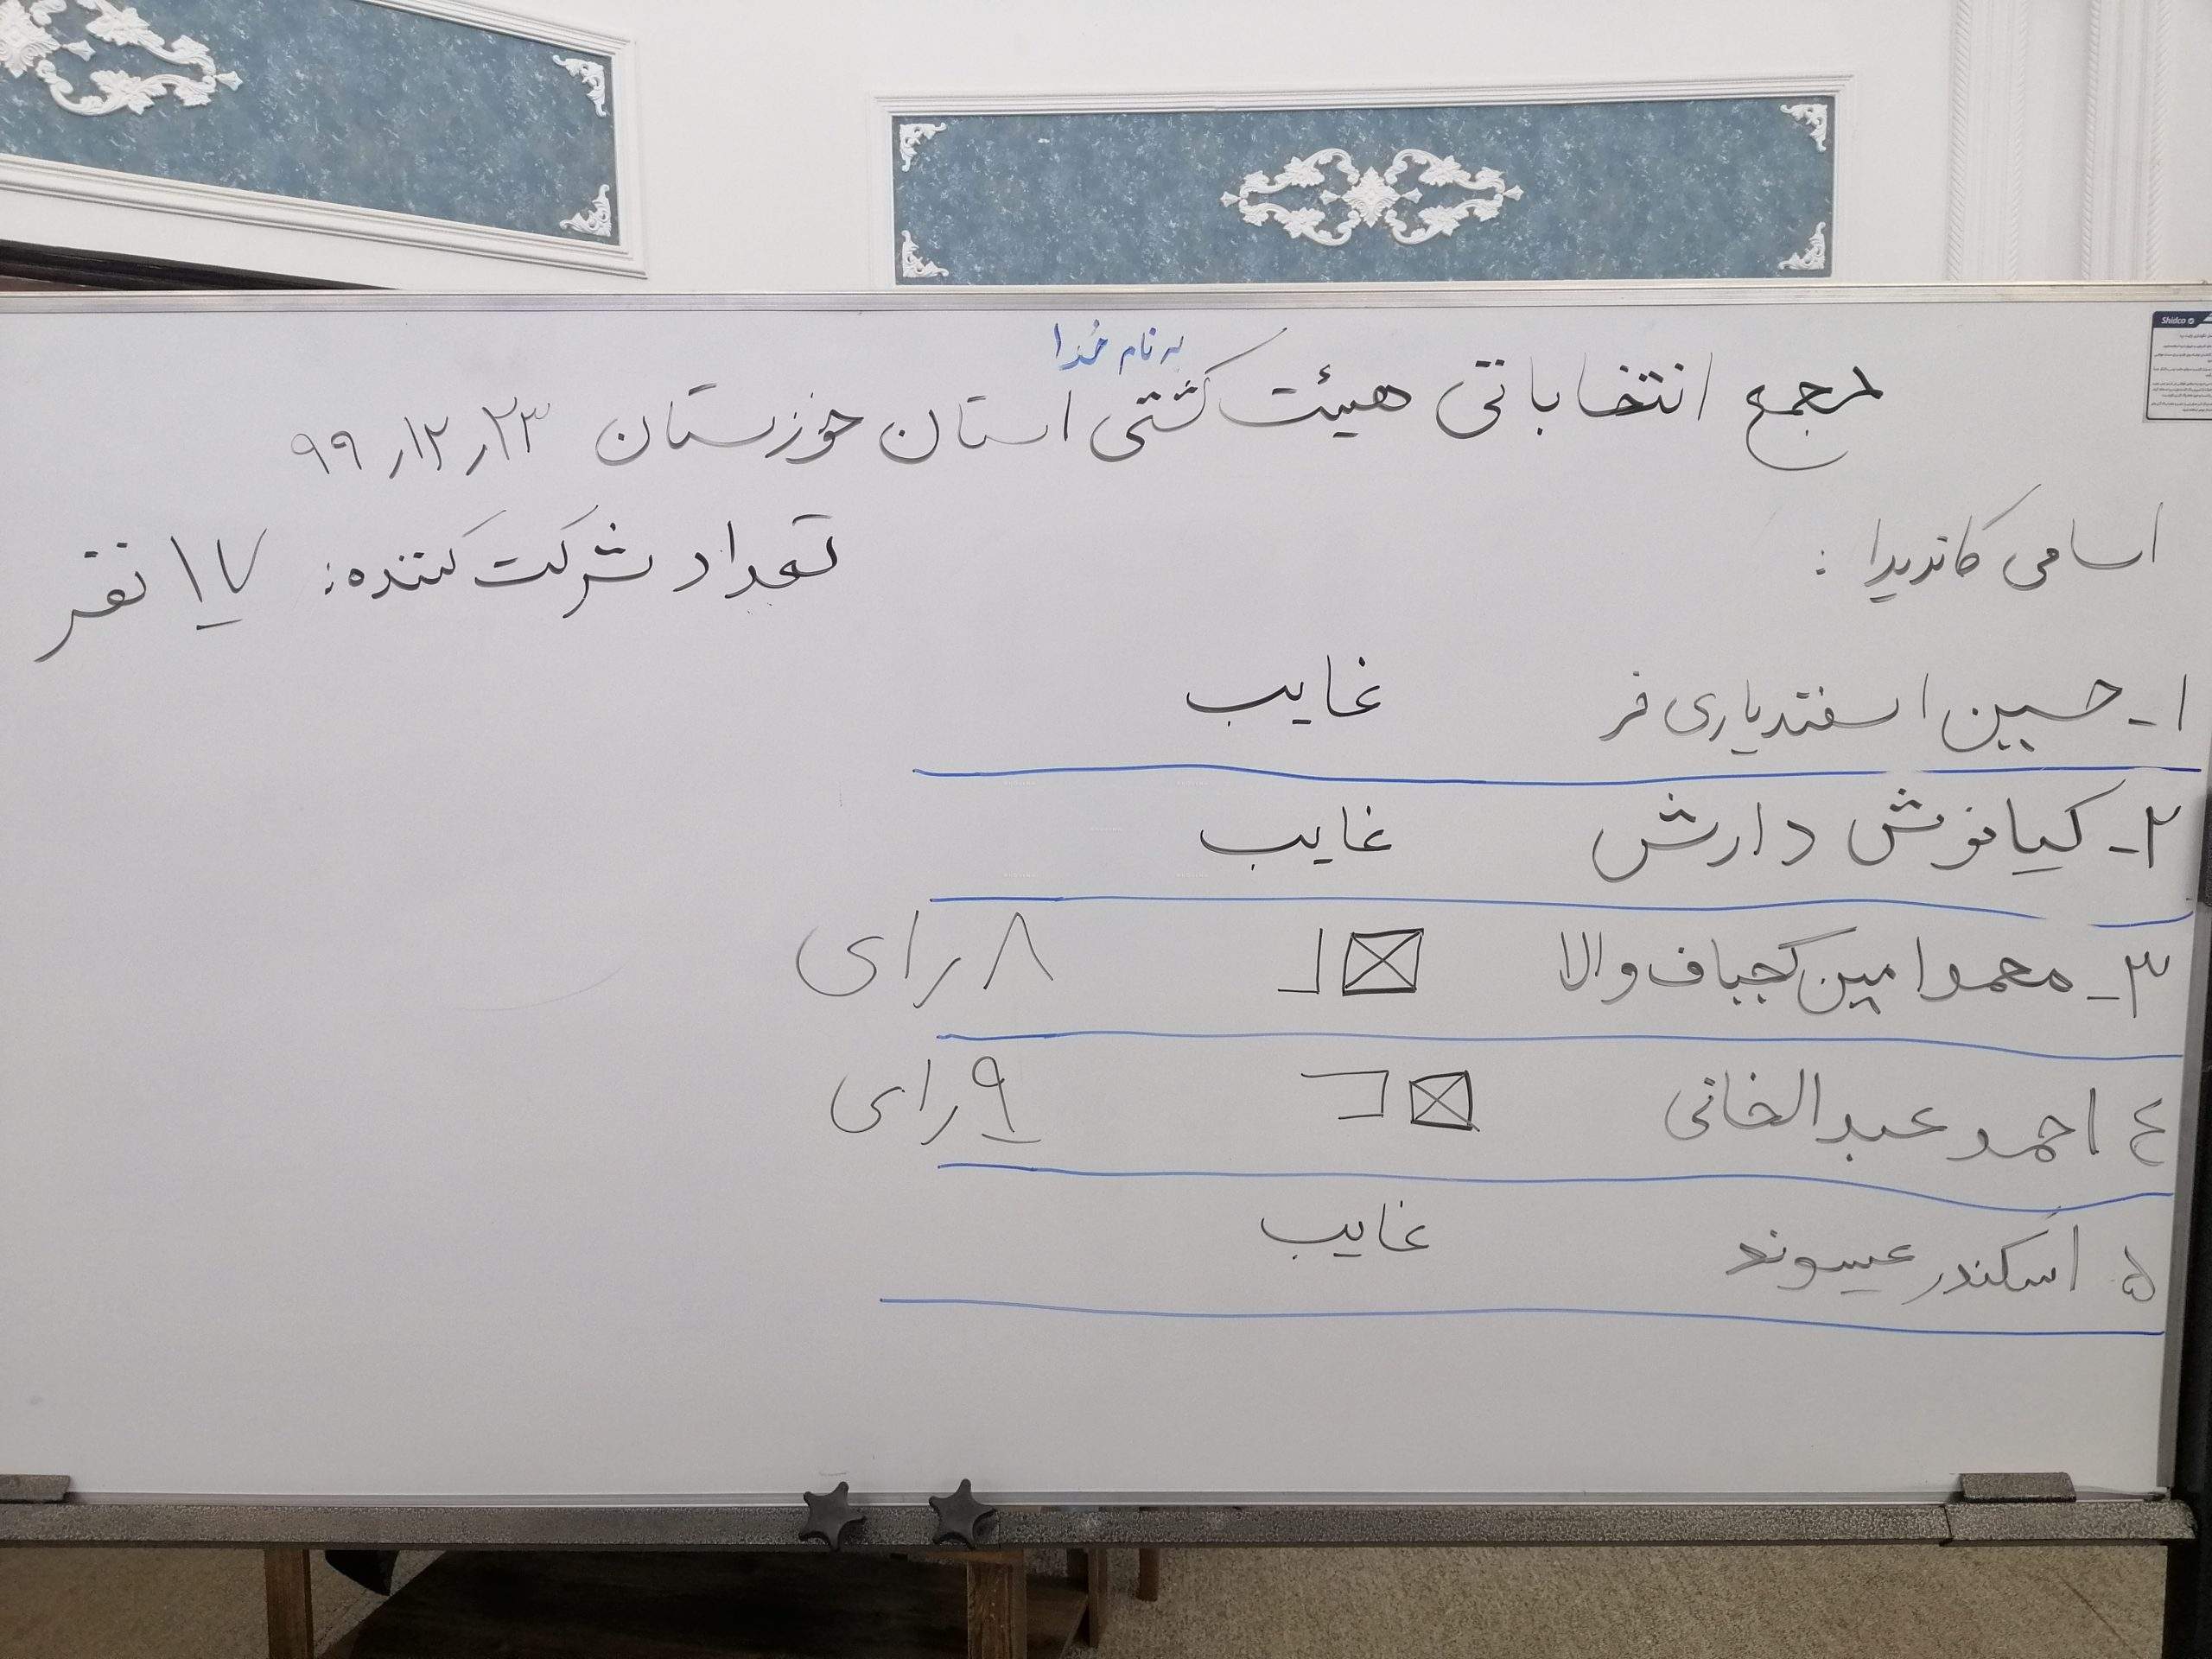 به نام خدا
مجمع انتخاباتی هیئت کشتی استان خوزستان ۹۹٫۱۲٫۲۳
اسامی کاندیدا :
تعداد شرکت کننده: ۱۷ نفر
۱- حسین اسفندیاری فر غایب
۲- کیانوش دارش غایب
۳- محمد امین کجباف والا ۸ رای
٤ احمد عبدالخانی ۹ رای
۵ اسکندر عیسوند غایب
Shidco